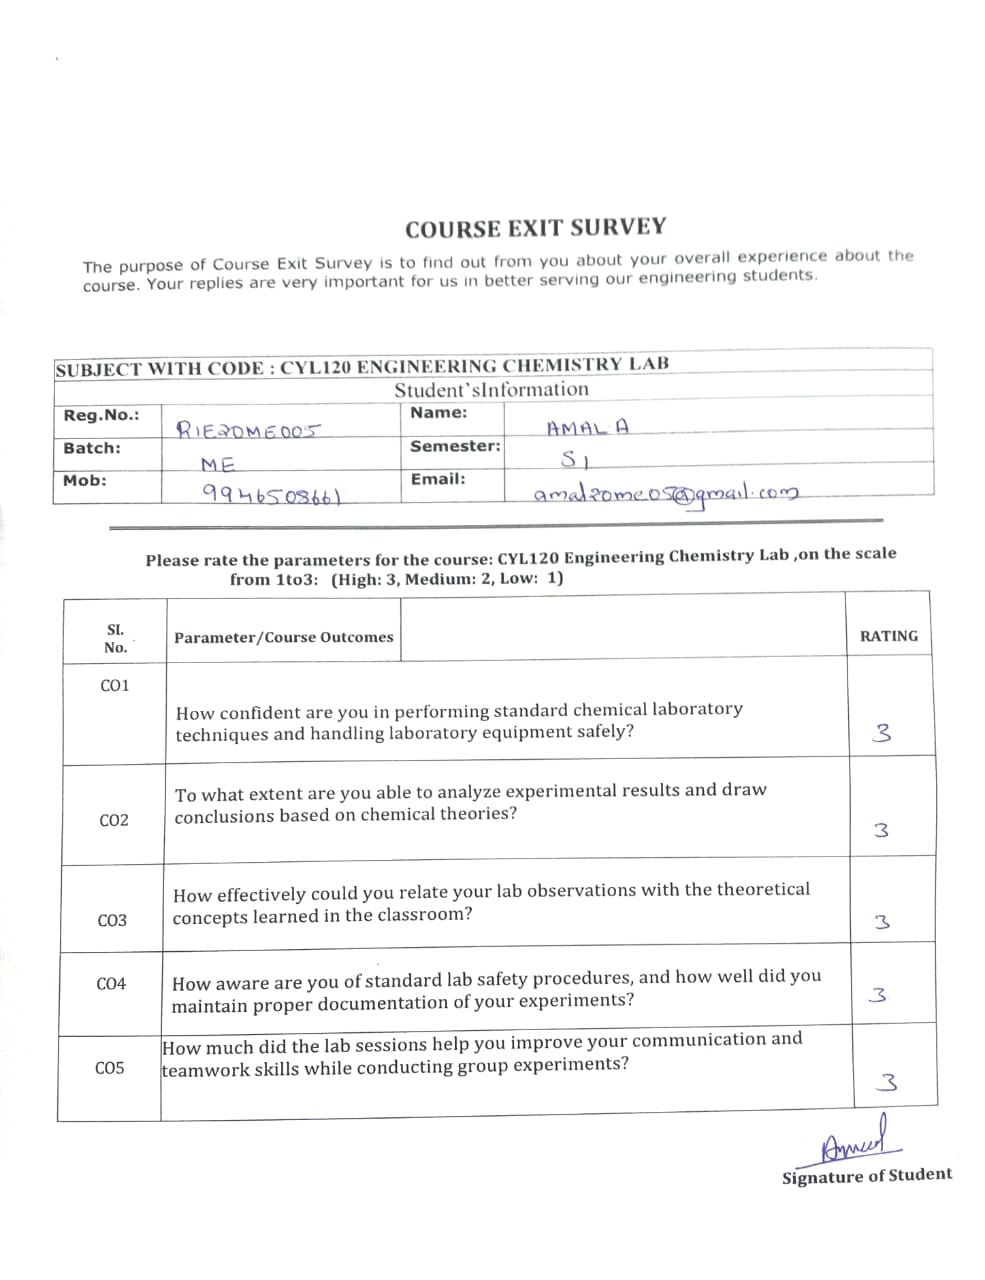 COURSE EXIT SURVEY
The purpose of Course Exit Survey is to find out from you about your overall experience about the
course. Your replies are very important for us in better serving our engineering students.
SUBJECT WITH CODE : CYL120 ENGINEERING CHEMISTRY LAB
Student'sInformation
Reg.No.: RIE20ME005 Name: AMAL A
Batch: ME Semester: S1
Mob: 9946508661 Email: amal20me05@gmail.com
Please rate the parameters for the course: CYL120 Engineering Chemistry Lab ,on the scale
from 1to3: (High: 3, Medium: 2, Low: 1)
SI.
No. Parameter/Course Outcomes RATING
CO1
How confident are you in performing standard chemical laboratory
techniques and handling laboratory equipment safely? 3
To what extent are you able to analyze experimental results and draw
CO2 conclusions based on chemical theories?
3
How effectively could you relate your lab observations with the theoretical
CO3 concepts learned in the classroom? 3
CO4 How aware are you of standard lab safety procedures, and how well did you
maintain proper documentation of your experiments? 3
How much did the lab sessions help you improve your communication and
CO5 teamwork skills while conducting group experiments?
3
Signature of Student